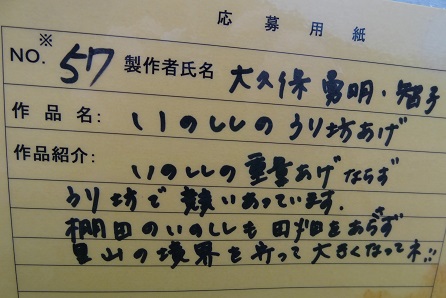 応募用紙
※
NO. 57 製作者氏名 大久保 勇明・智子
作品名: いのししの うり坊あげ
作品紹介: いのししの 重量あげ ならず
うり坊で 競いあっています.
棚田のいのししも 田畑をあらさず
里山の境界を守って 大きくなってネ!!